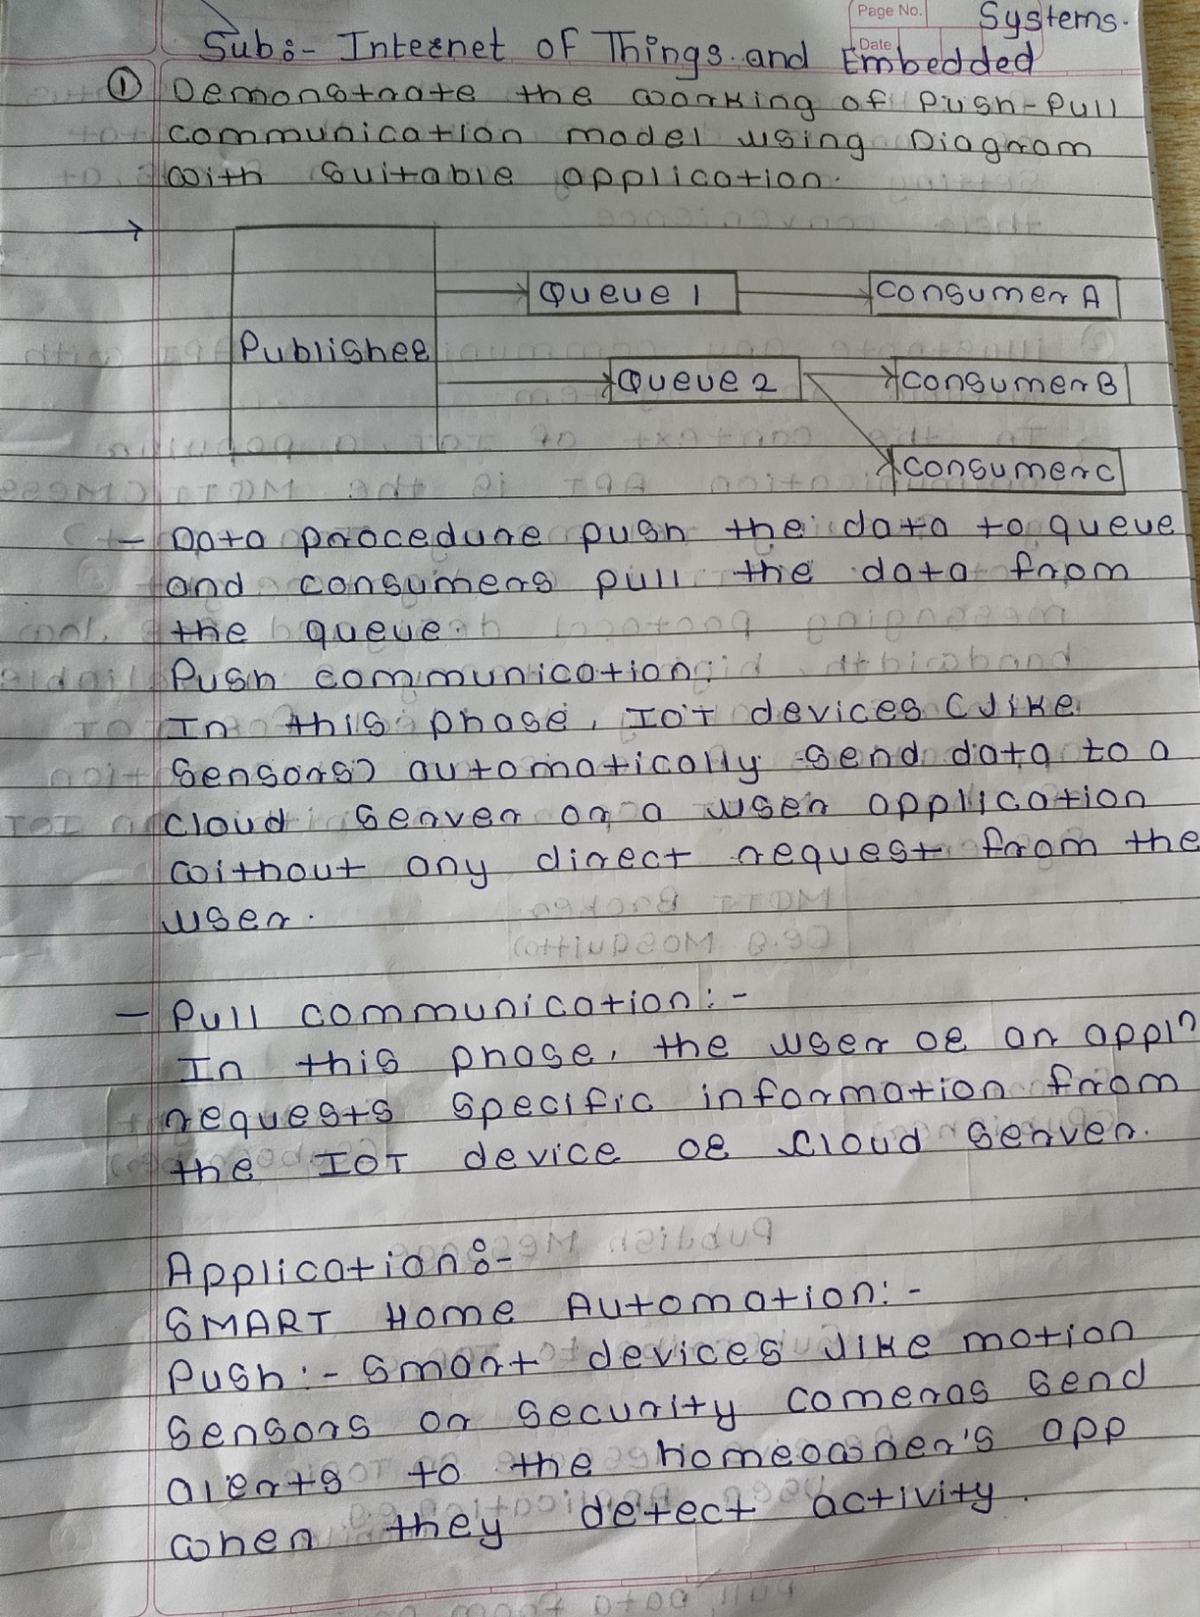 Page No.
Date
Systems.
Sub:- Internet of Things and Embedded
① Demonstrate the working of Push-Pull
communication model using Diagram
with suitable application.
→
Publisher
Queue 1
Consumer A
Queue 2
Consumer B
Consumer C
- Data procedure push the data to queue
and consumers pull the data from
the queue.
Push communication:
In this phase, IOT devices (like
sensors) automatically send data to a
cloud server or a user application
without any direct request from the
user.
- Pull communication:-
In this phase, the user or an appln
requests specific information from
the IOT device or cloud server.
Application:-
SMART Home Automation:-
Push:- Smart devices like motion
sensors or security cameras send
alerts to the homeowner's app
when they detect activity.